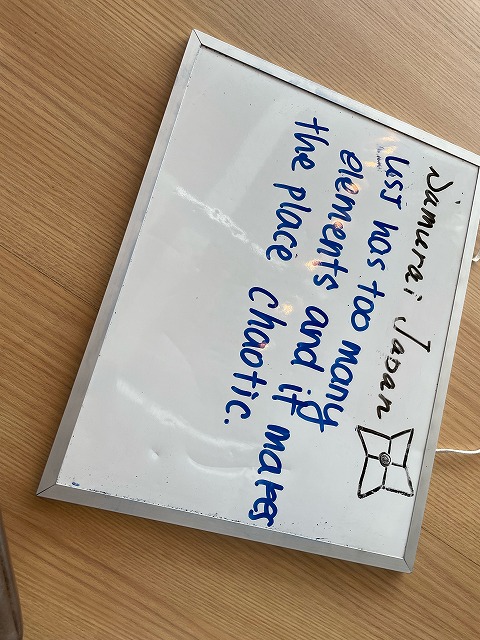 Samurai Japan
UST has too many
elements and it makes
the place chaotic.